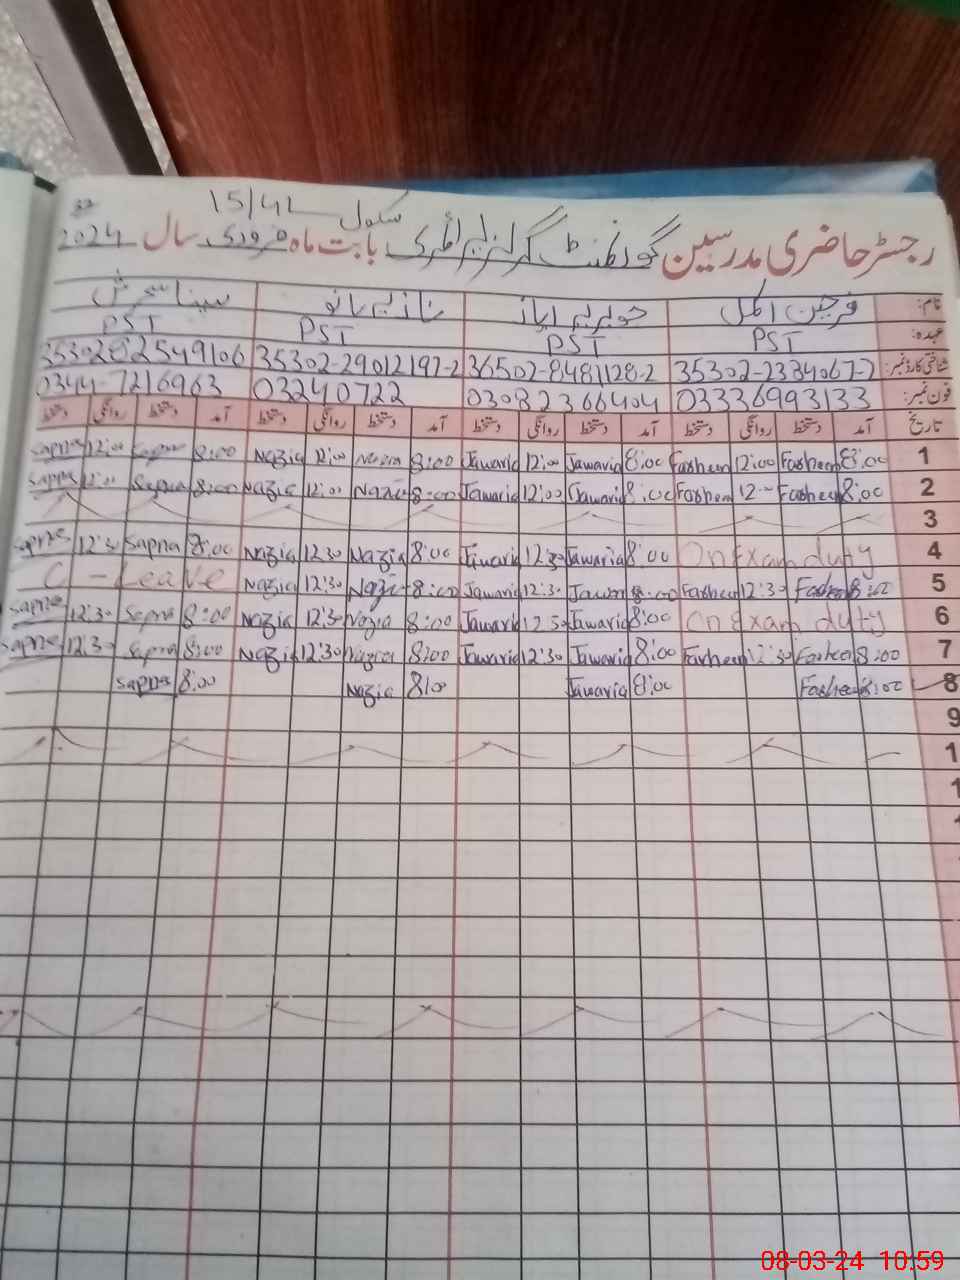 32
سکول 15/4L
رجسٹر حاضری مدرسین گورنمنٹ گرلز پرائمری بابت ماہ فروری سال 2024
نام: فرحین اکمل جویریہ ایاز نازیہ بانو سپنا سحرش
عہدہ: PST PST PST PST
شناختی کارڈ نمبر: 35302-2384067-2 36502-8481128-2 35302-29012197-2 3530282549106
فون نمبر: 03336993133 03082366404 03240722 0344-7216963
تاریخ آمد دستخط روانگی دستخط آمد دستخط روانگی دستخط آمد دستخط روانگی دستخط آمد دستخط روانگی دستخط
Sapna 12:00 Sapna 8:00 Nazia 12:00 Nazia 8:00 Jawaria 12:00 Jawaria 8:00 Farheen 12:00 Farheen 8:00 1
Sapna 12:00 Sapna 8:00 Nazia 12:00 Nazia 8:00 Jawaria 12:00 Jawaria 8:00 Farheen 12- Farheen 8:00 2
3
Sapna 12:30 Sapna 8:00 Nazia 12:30 Nazia 8:00 Jawaria 12:30 Jawaria 8:00 On Exam duty 4
C - Leave Nazia 12:30 Nazia 8:00 Jawaria 12:30 Jawaria 8:00 Farheen 12:30 Farheen 8:00 5
Sapna 12:30 Sapna 8:00 Nazia 12:30 Nazia 8:00 Jawaria 12:30 Jawaria 8:00 On Exam duty 6
Sapna 12:30 Sapna 8:00 Nazia 12:30 Nazia 8:00 Jawaria 12:30 Jawaria 8:00 Farheen 12:30 Farheen 8:00 7
Sapna 8:00 Nazia 8:00 Jawaria 8:00 Farheen 8:00 8
9
1
1
08-03-24 10:59